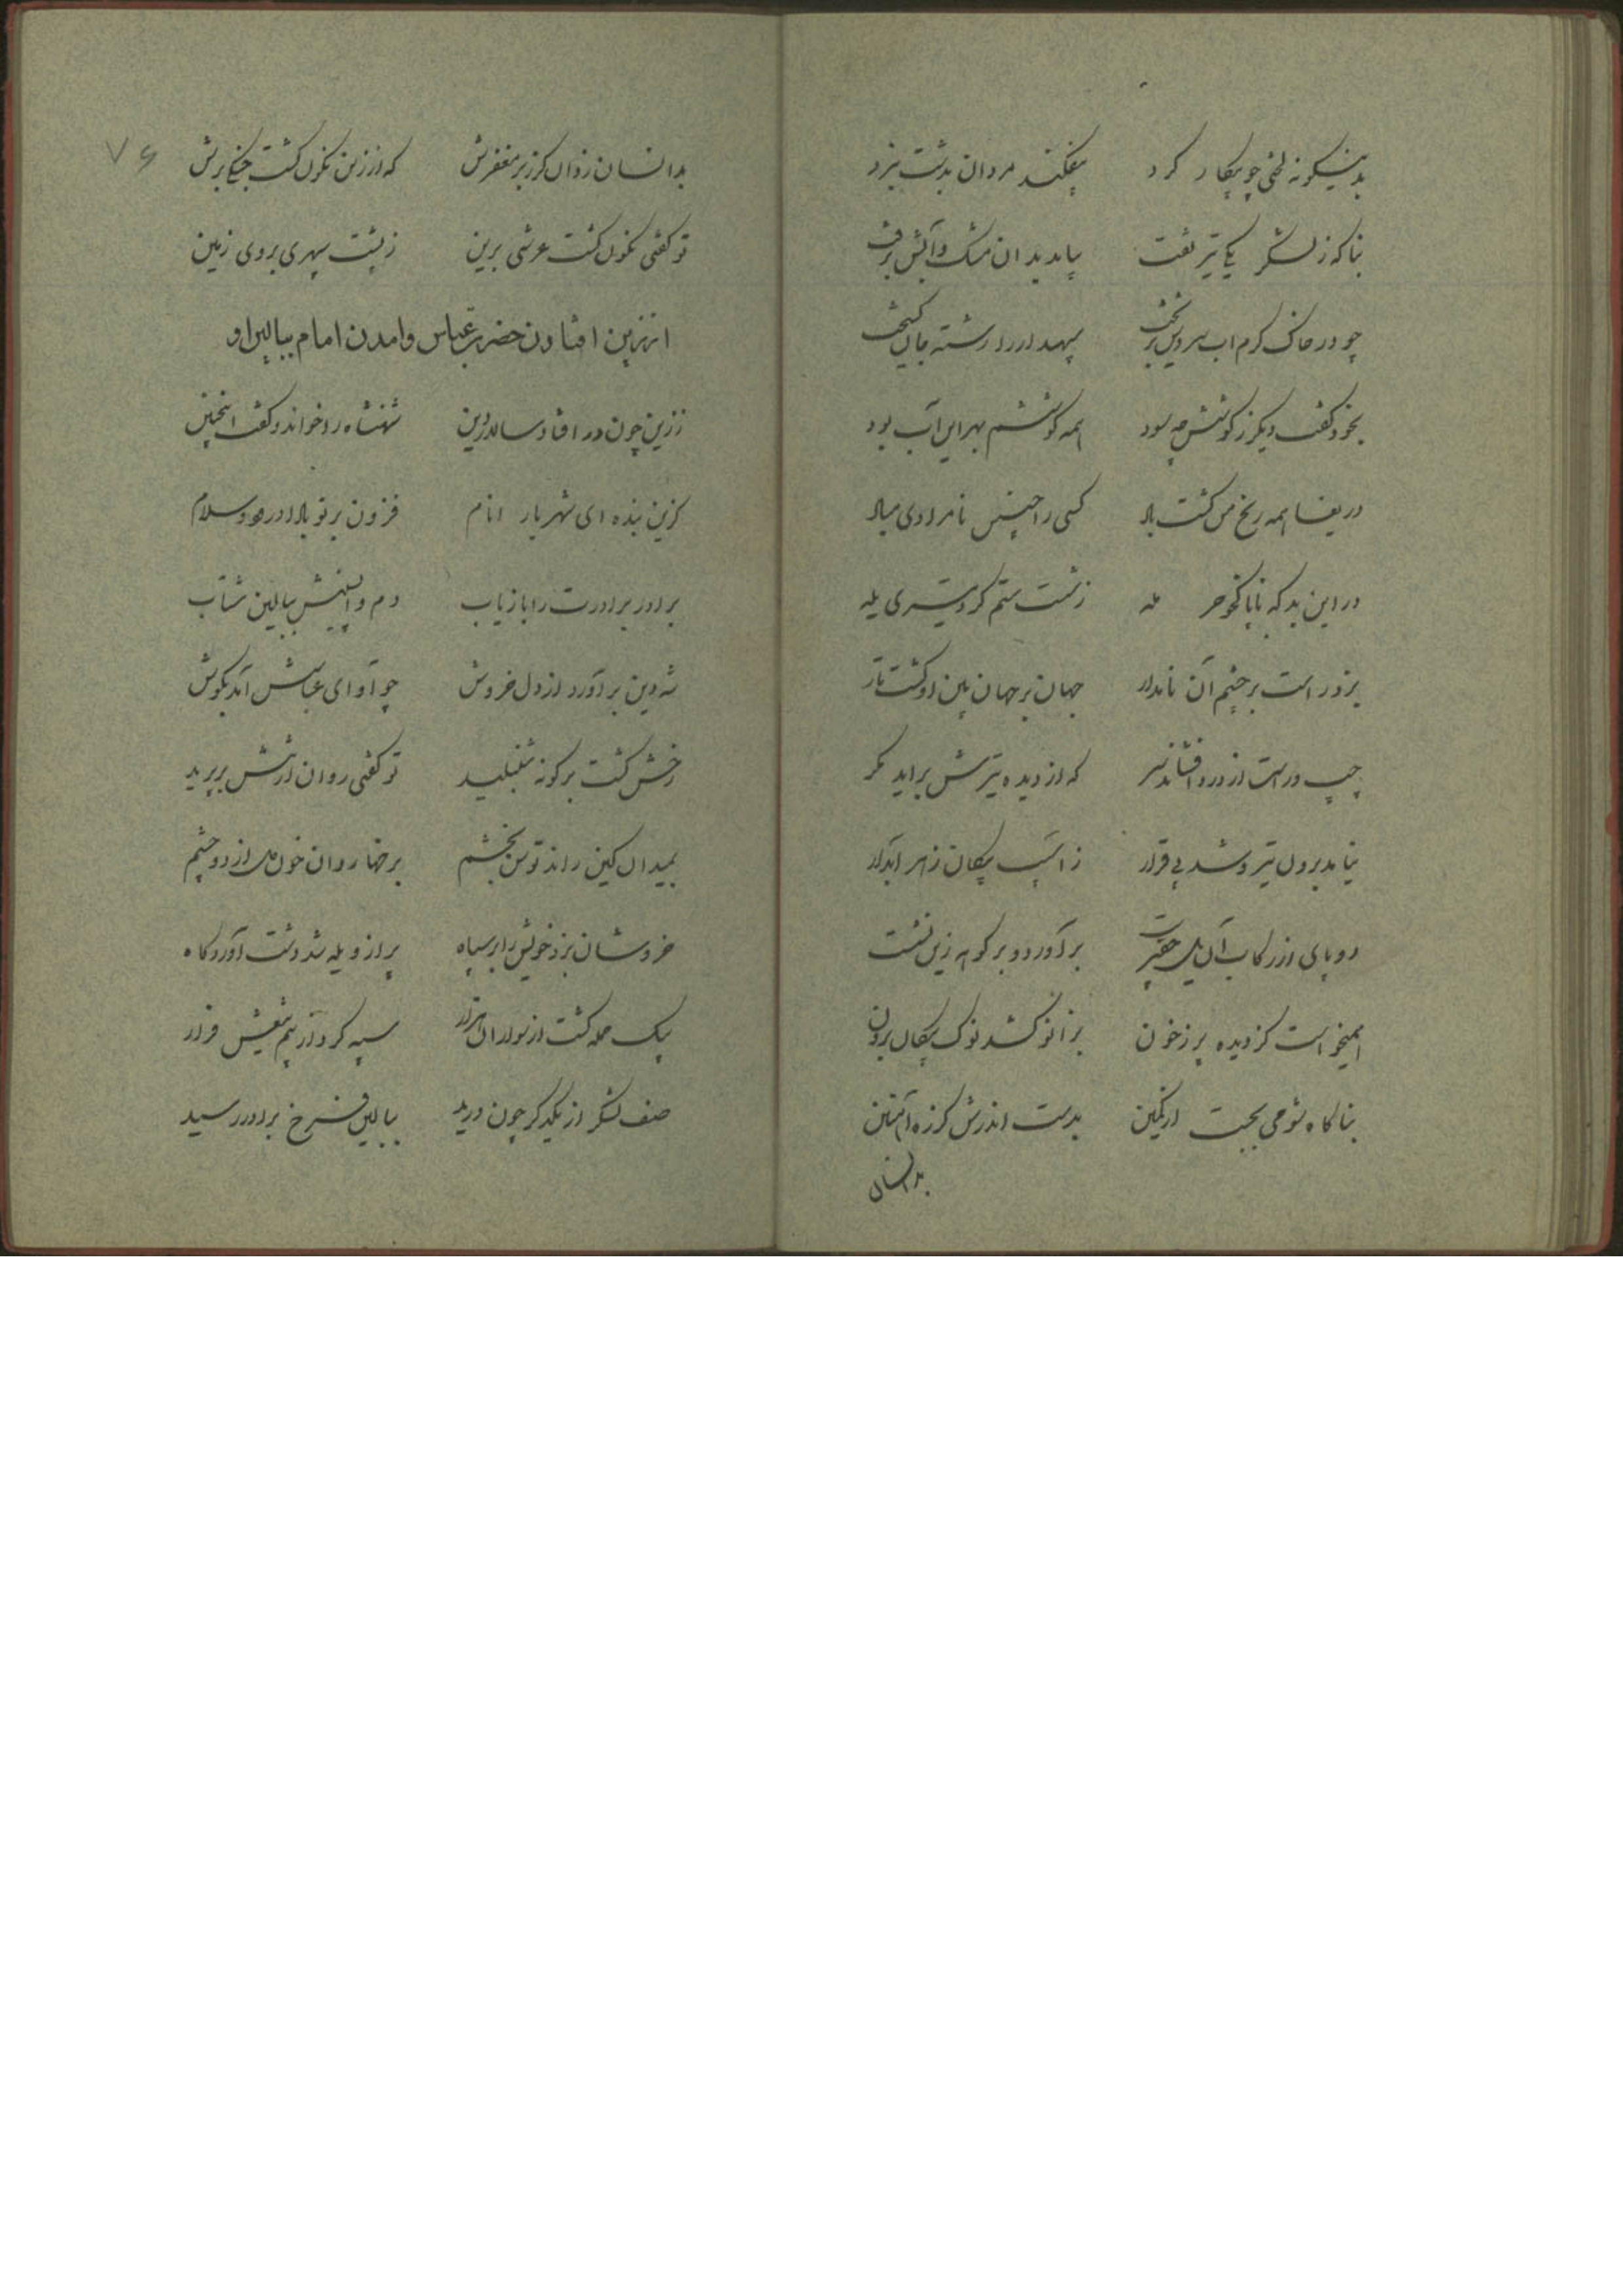 بدینگونه لختی چو پیکار کرد بیفکند مردان بدشت نبرد
بناکه ز لشکر یکی تیر تفت بیامد بدان مشک و آبش برفت
چو در خاک کرم اب سردش بریخت سپهدار را رشته جان کسیخت
بخود گفت دیگر ز کوشش چه سود همه کوششم بهر این آب بود
دریغا همه رنج من گشت باد کسی را چنین نامرادی مباد
در این بد که ناپاکخو حرمله ز شست ستم کرد تیری یله
بزد راست بر چشم آن نامدار جهان بر جهان بین او گشت تار
چپ و راست از درد افشاند سر که از دیده تیرش براید مکر
نیامد برون تیر و شد بی قرار ز اسیب پیکان زهر ابدار
دو پای از رکاب آن یل برآورد و بر کوهه زین نشست
همیخواست کز دیده پر ز خون بزانو کشد نوک پیکان برون
بناکاه شومی بجست از کمین بدست اندرش کرزه آهنین
بدانسان
۷۶
بدانسان زد آن کرز بر مغفرش که از زین نکون گشت جنکی برش
تو گفتی نکون گشت عرش برین ز پشت سپهری بروی زمین
از زین افتادن حضرت عباس وامدن امام ببالین او
ز زین چون در افتاد سالار دین شهنشاه را خواند و گفت اینچنین
کزین بنده ای شهریار انام فزون بر تو بادا درود و سلام
برادر برادرت را باز یاب دم واپسینش ببالین شتاب
چو آوای عباسش آمد بکوش شه دین برآورد از دل خروش
رخش گشت بر کونه شنبلید تو گفتی روان از تنش برپرید
بمیدان کین راند توسن بخشم برخها روان خون دل از دو چشم
خروشان بزد خویش را بر سپاه پر از ویله شد دشت آوردگاه
بیک حمله کشت از سواران هزار سپه کرد از بیم تیغش فرار
صف لشکر از یکدکر چون درید ببالین فرخ برادر رسید